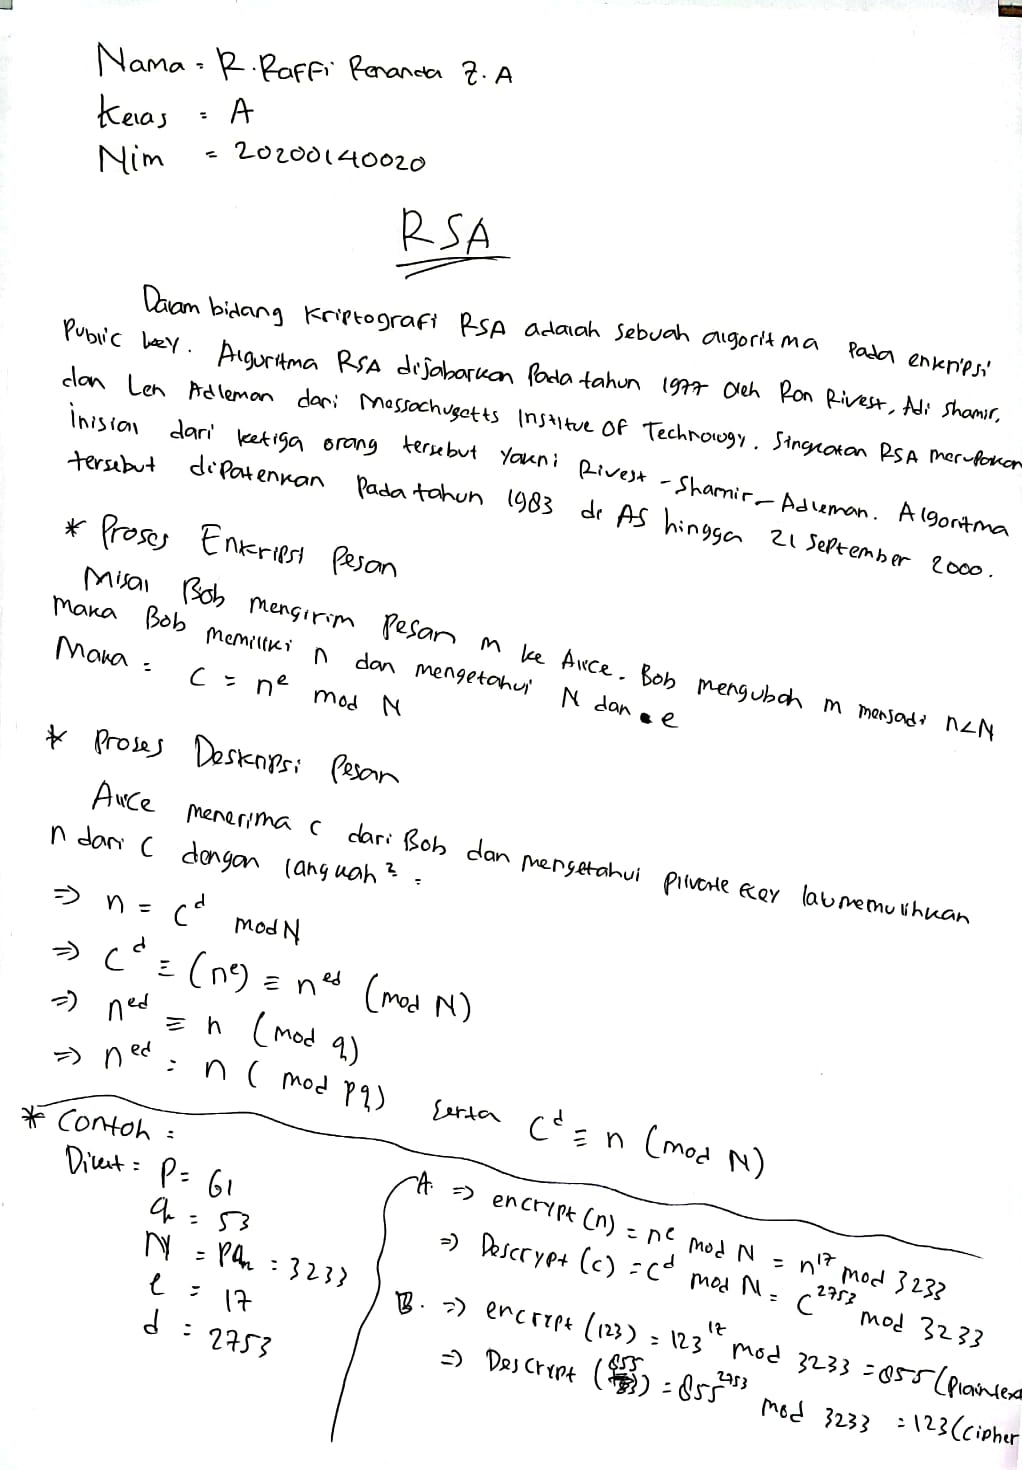 Nama = R. Raffi Fernanda Z. A
Kelas = A
Nim = 20200140020
RSA
Dalam bidang Kriptografi RSA adalah sebuah algoritma Pada enkripsi
Public key. Algoritma RSA dijabarkan Pada tahun 1977 Oleh Ron Rivest, Adi Shamir,
dan Len Adleman dari Massachusetts Institue OF Technology. Singkatan RSA merupakan
Inisial dari ketiga orang tersebut Yakni Rivest - Shamir - Adleman. Algoritma
tersebut dipatenkan Pada tahun 1983 di AS hingga 21 September 2000.
* Proses Enkripsi Pesan
Misal Bob mengirim Pesan m ke Alice. Bob mengubah m menjadi n<N
Maka Bob memiliki n dan mengetahui N dan e
Maka : C = n^e mod N
* Proses Deskripsi Pesan
Alice menerima c dari Bob dan mengetahui private key lalu memulihkan
n dari C dengan langkah² :
=> n = C^d mod N
=> C^d ≡ (n^e) ≡ n^ed (mod N)
=> n^ed ≡ n (mod q)
=> n^ed = n (mod pq) serta C^d ≡ n (mod N)
* Contoh :
Diket : P = 61
q = 53
N = Pq = 3233
e = 17
d = 2753
A. => encrypt (n) = n^e mod N = n^17 mod 3233
=> Descrypt (c) = c^d mod N = C^2753 mod 3233
B. => encrypt (123) = 123^17 mod 3233 = 855 (Plaintext
=> Descrypt (855) = 855^2753 mod 3233 = 123 (cipher